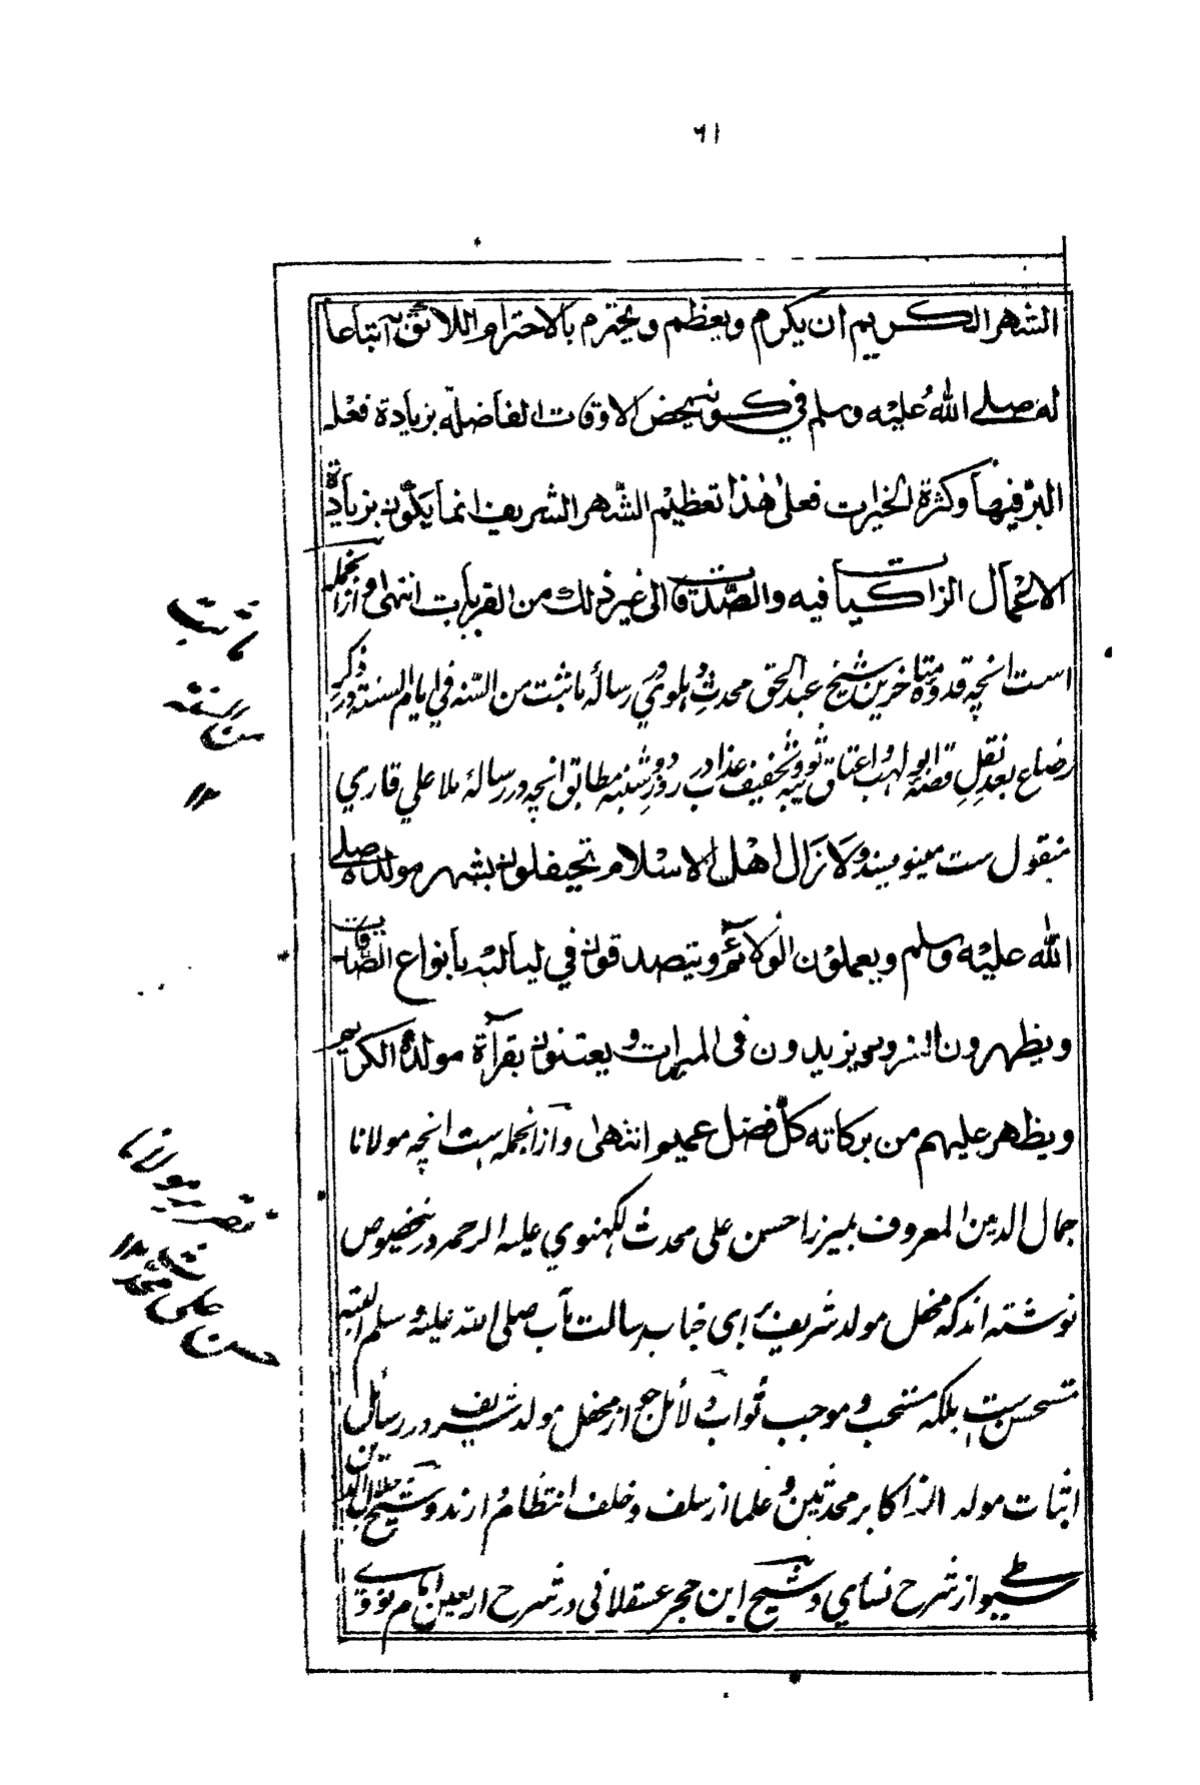 ٦١
الشهر الكريم ان يكرم ويعظم ويحترم بالاحترام اللائق به اتباعا
له صلى الله عليه وسلم في كونه يخص الاوقات الفاضلة بزيادة فعله
البر فيها وكثرة الخيرات فعلى هذا تعظيم الشهر الشريف انما يكون بزيادة
الاعمال الزاكيات فيه والصدقات الى غير ذلك من القربات انتهى و ازانجمله
است انچه قدوه متاخرين شيخ عبد الحق محدث دہلوي در رسالۂ ماثبت من السنه في ايام السنه در ذكر
رضاع بعد نقل قصۂ ابو لهب و اعتاق ثويبه و تخفيف عذاب در روز دوشنبه مطابق انچه در رسالۂ ملا علي قاري
منقول ست مينويسند ولا زال اهل الاسلام يحتفلون بشهر مولده صلى
الله عليه وسلم ويعملون الولائم ويتصدقون في لياليه بأنواع الصدقات
ويظهرون السرور ويزيدون فى المبرات ويعتنون بقرآة مولده الكريم
ويظهر عليهم من بركاته كل فضل عميم انتهى و ازانجمله است انچه مولانا
جمال الدين المعروف بميرزا حسن على محدث لكهنوي عليه الرحمه درينخصوص
نوشته اند كه محفل مولد شريف براى جناب رسالت مآب صلى الله عليه وسلم البته
مستحسن ست بلكه مستحب و موجب ثواب و دلائل جواز محفل مولد شريف در رسائل
اثبات مولد از اكابر محدثين و علما از سلف و خلف انتظام دارند و شيخ جلال الدين
سيوطى از شرح نسايي و شيخ ابن حجر عسقلانى در شرح اربعين امام نووى
ما ثبت
من السنة
١٢
تقرير مولانا
حسن على محدث
١٢